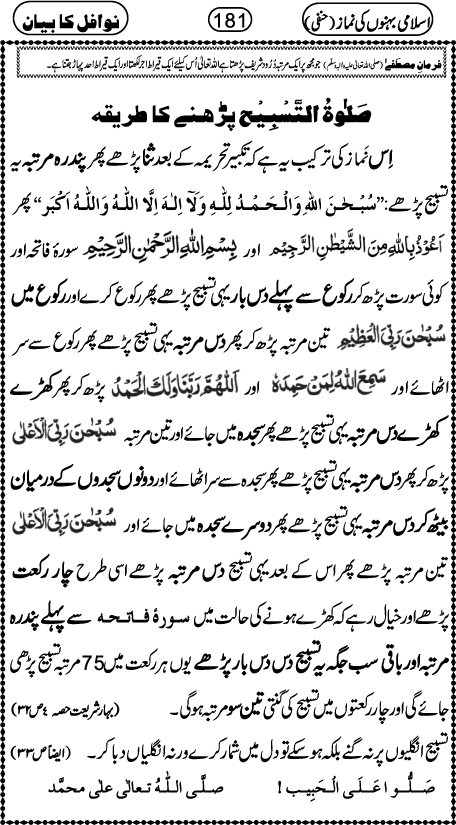 اسلامی بہنوں کی نماز (حنفی) 181 نوافل کا بیان
فرمانِ مصطفےٰ (صلی اللہ تعالیٰ علیہ والہ وسلم) جو مجھ پر ایک مرتبہ دُرُود شریف پڑھتا ہے اللہ تعالیٰ اُس کیلئے ایک قیراط اجر لکھتا اور ایک قیراط احد پہاڑ جتنا ہے۔
صَلٰوۃُ التَّسْبِیْح پڑھنے کا طریقہ
اِس نَماز کی ترکیب یہ ہے کہ تکبیرِ تحریمہ کے بعد ثنا پڑھے پھر پندرہ مرتبہ یہ
تسبیح پڑھے: ”سُبْحٰنَ اللّٰهِ وَالْحَمْدُ لِلّٰهِ وَلَآ اِلٰهَ اِلَّا اللّٰهُ وَاللّٰهُ اَكْبَر“ پھر
اَعُوْذُ بِاللّٰهِ مِنَ الشَّيْطٰنِ الرَّجِيْم اور بِسْمِ اللّٰهِ الرَّحْمٰنِ الرَّحِيْم سورۂ فاتحہ اور
کوئی سورت پڑھ کر رکوع سے پہلے دس بار یہی تسبیح پڑھے پھر رکوع کرے اور رکوع میں
سُبْحٰنَ رَبِّيَ الْعَظِيْم تین مرتبہ پڑھ کر پھر دس مرتبہ یہی تسبیح پڑھے پھر رکوع سے سر
اٹھائے اور سَمِعَ اللّٰهُ لِمَنْ حَمِدَهٗ اور اَللّٰهُمَّ رَبَّنَا وَلَكَ الْحَمْدُ پڑھ کر پھر کھڑے
کھڑے دس مرتبہ یہی تسبیح پڑھے پھر سجدہ میں جائے اور تین مرتبہ سُبْحٰنَ رَبِّيَ الْاَعْلٰى
پڑھ کر پھر دس مرتبہ یہی تسبیح پڑھے پھر سجدہ سے سر اٹھائے اور دونوں سجدوں کے درمیان
بیٹھ کر دس مرتبہ یہی تسبیح پڑھے پھر دوسرے سجدہ میں جائے اور سُبْحٰنَ رَبِّيَ الْاَعْلٰى
تین مرتبہ پڑھے پھر اس کے بعد یہی تسبیح دس مرتبہ پڑھے اسی طرح چار رکعت
پڑھے اور خیال رہے کہ کھڑے ہونے کی حالت میں سورۂ فاتحہ سے پہلے پندرہ
مرتبہ اور باقی سب جگہ یہ تسبیح دس دس بار پڑھے یوں ہر رکعت میں 75 مرتبہ تسبیح پڑھی
جائے گی اور چار رکعتوں میں تسبیح کی گنتی تین سو مرتبہ ہوگی۔ (بہارِ شریعت حصہ ٤ ص ٣٢)
تسبیح انگلیوں پر نہ گنے بلکہ ہوسکے تو دل میں شمار کرے ورنہ انگلیاں دبا کر۔ (ایضاً ص ٣٣)
صَلُّوا عَلَی الْحَبِیب ! صلَّی اللّٰهُ تعالٰی علٰی محمَّد